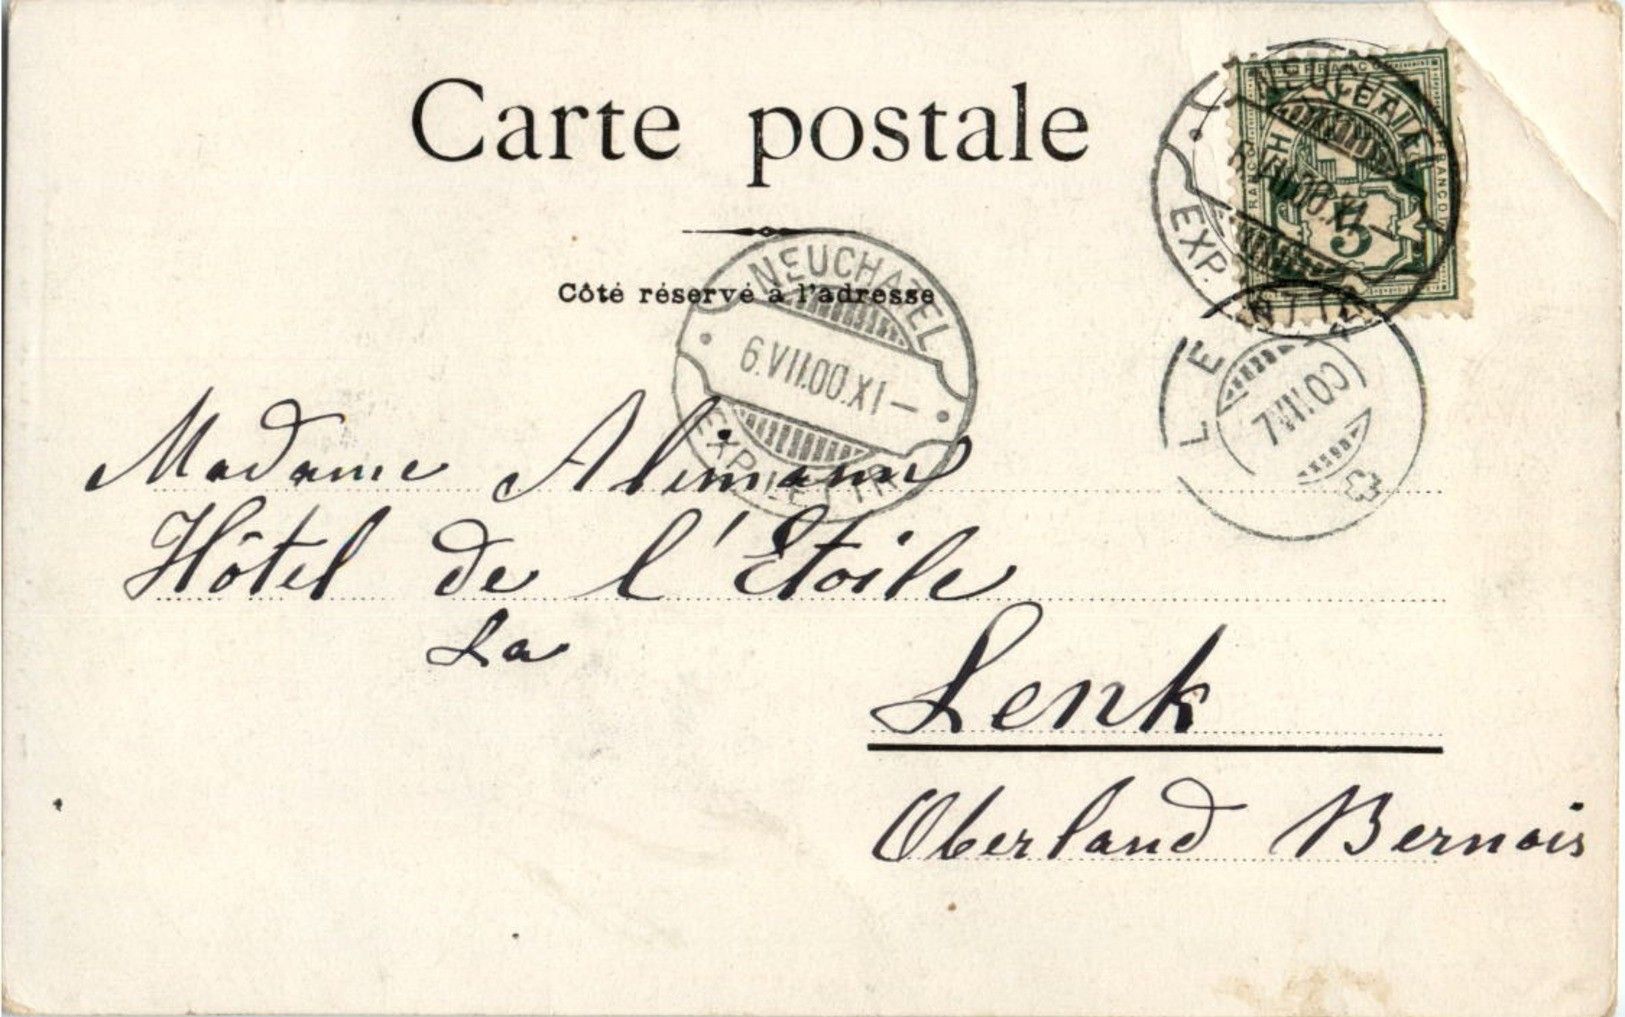 Carte postale
FRANCO
FRANCO
5
NEUCHATEL
6.VII.00.XI
EXP. LETTR.
Côté réservé à l'adresse
NEUCHATEL
6.VII.00.XI–
EXP. LETTR.
LENK
7.VII.00
Madame Alimann
Hôtel de l'Etoile
La
Lenk
Oberland Bernois